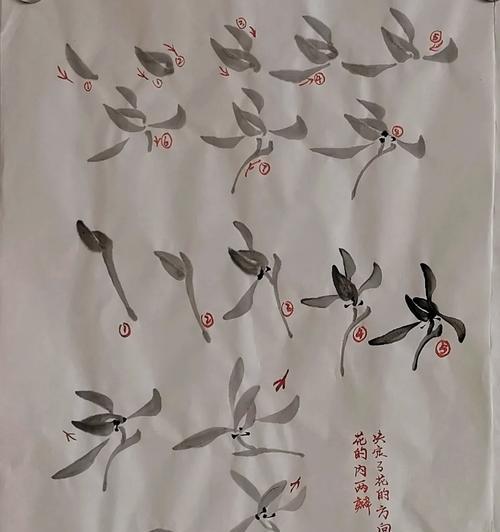 ① ① ② ③ ④ ⑤
⑥ ⑦ ⑧
① ② ③ ④ ⑤
花的内两瓣
决定了花的方向